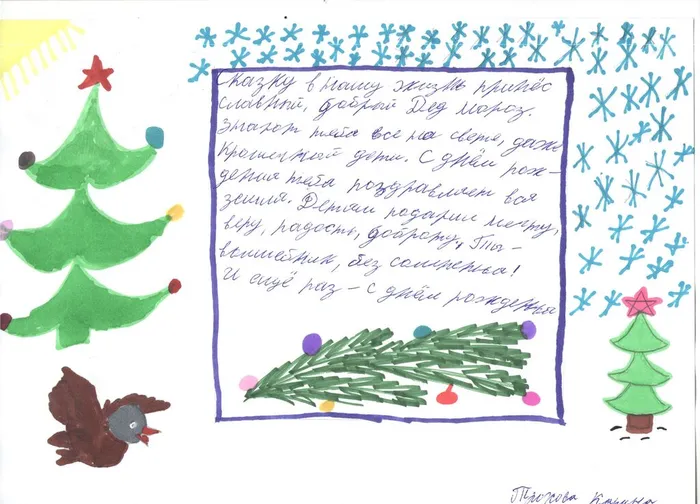 Сказку в нашу жизнь принёс
славный, добрый Дед Мороз.
Знают тебя все на свете, даже
крошечный дети. С днём рож-
дения тебя поздравляет вся
земля. Детям подарил мечту,
веру, радость, доброту, Ты -
волшебник, без сомненья!
И ещё раз - с днём рожденья
Карина